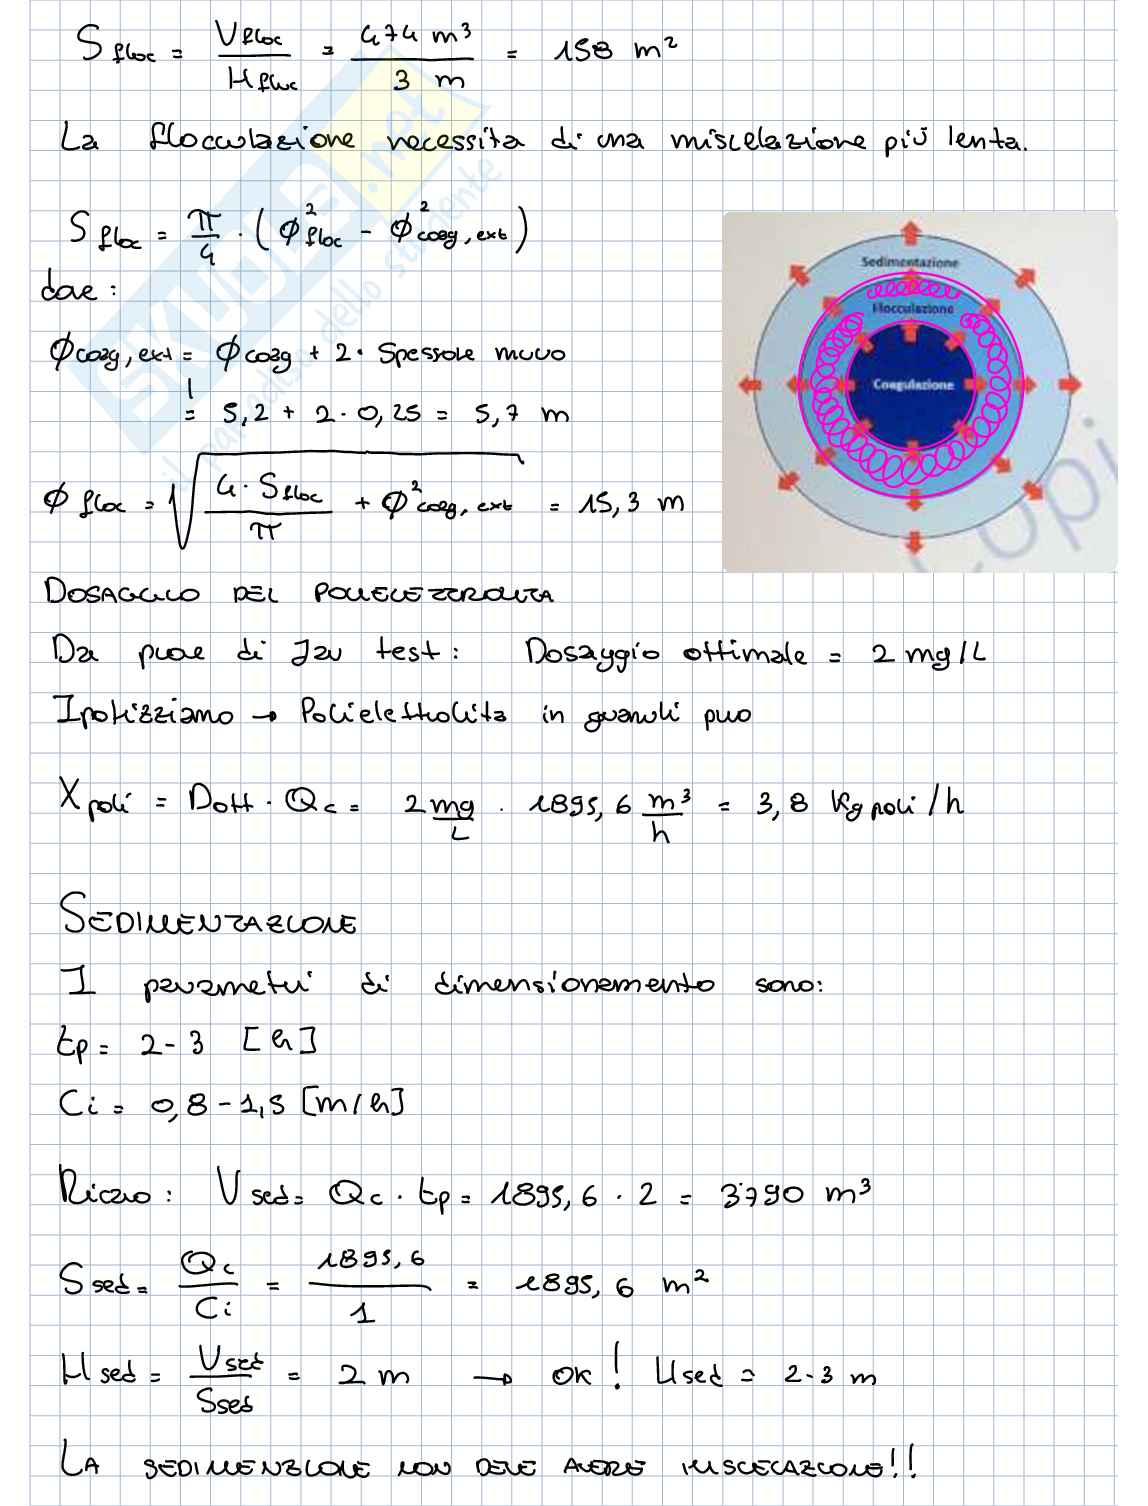 S floc = V floc / H floc = 474 m³ / 3 m = 158 m²
La flocculazione necessita di una miscelazione più lenta.
S floc = π/4 · (ϕ²floc - ϕ²coag, ext)
dove:
ϕcoag, ext = ϕcoag + 2 · Spessore muro
= 5,2 + 2 · 0,25 = 5,7 m
ϕ floc = √(4 · S floc / π + ϕ²coag, ext) = 15,3 m
Sedimentazione
Flocculazione
Coagulazione
DOSAGGIO DEL POLIELETTROLITA
Da prove di Jar test: Dosaggio ottimale = 2 mg/L
Ipotizziamo → Polielettrolita in granuli puro
X poli = Dott · Qc = 2 mg/L · 1895,6 m³/h = 3,8 Kg poli/h
SEDIMENTAZIONE
I parametri di dimensionamento sono:
tp = 2-3 [h]
Ci = 0,8-1,5 [m/h]
Ricavo: V sed = Qc · tp = 1895,6 · 2 = 3790 m³
S sed = Qc / Ci = 1895,6 / 1 = 1895,6 m²
H sed = V sed / S sed = 2 m → OK! H sed = 2-3 m
LA SEDIMENZIONE NON DEVE AVERE MISCELAZIONE!!
SKUOLA.net
il paradiso dello studente